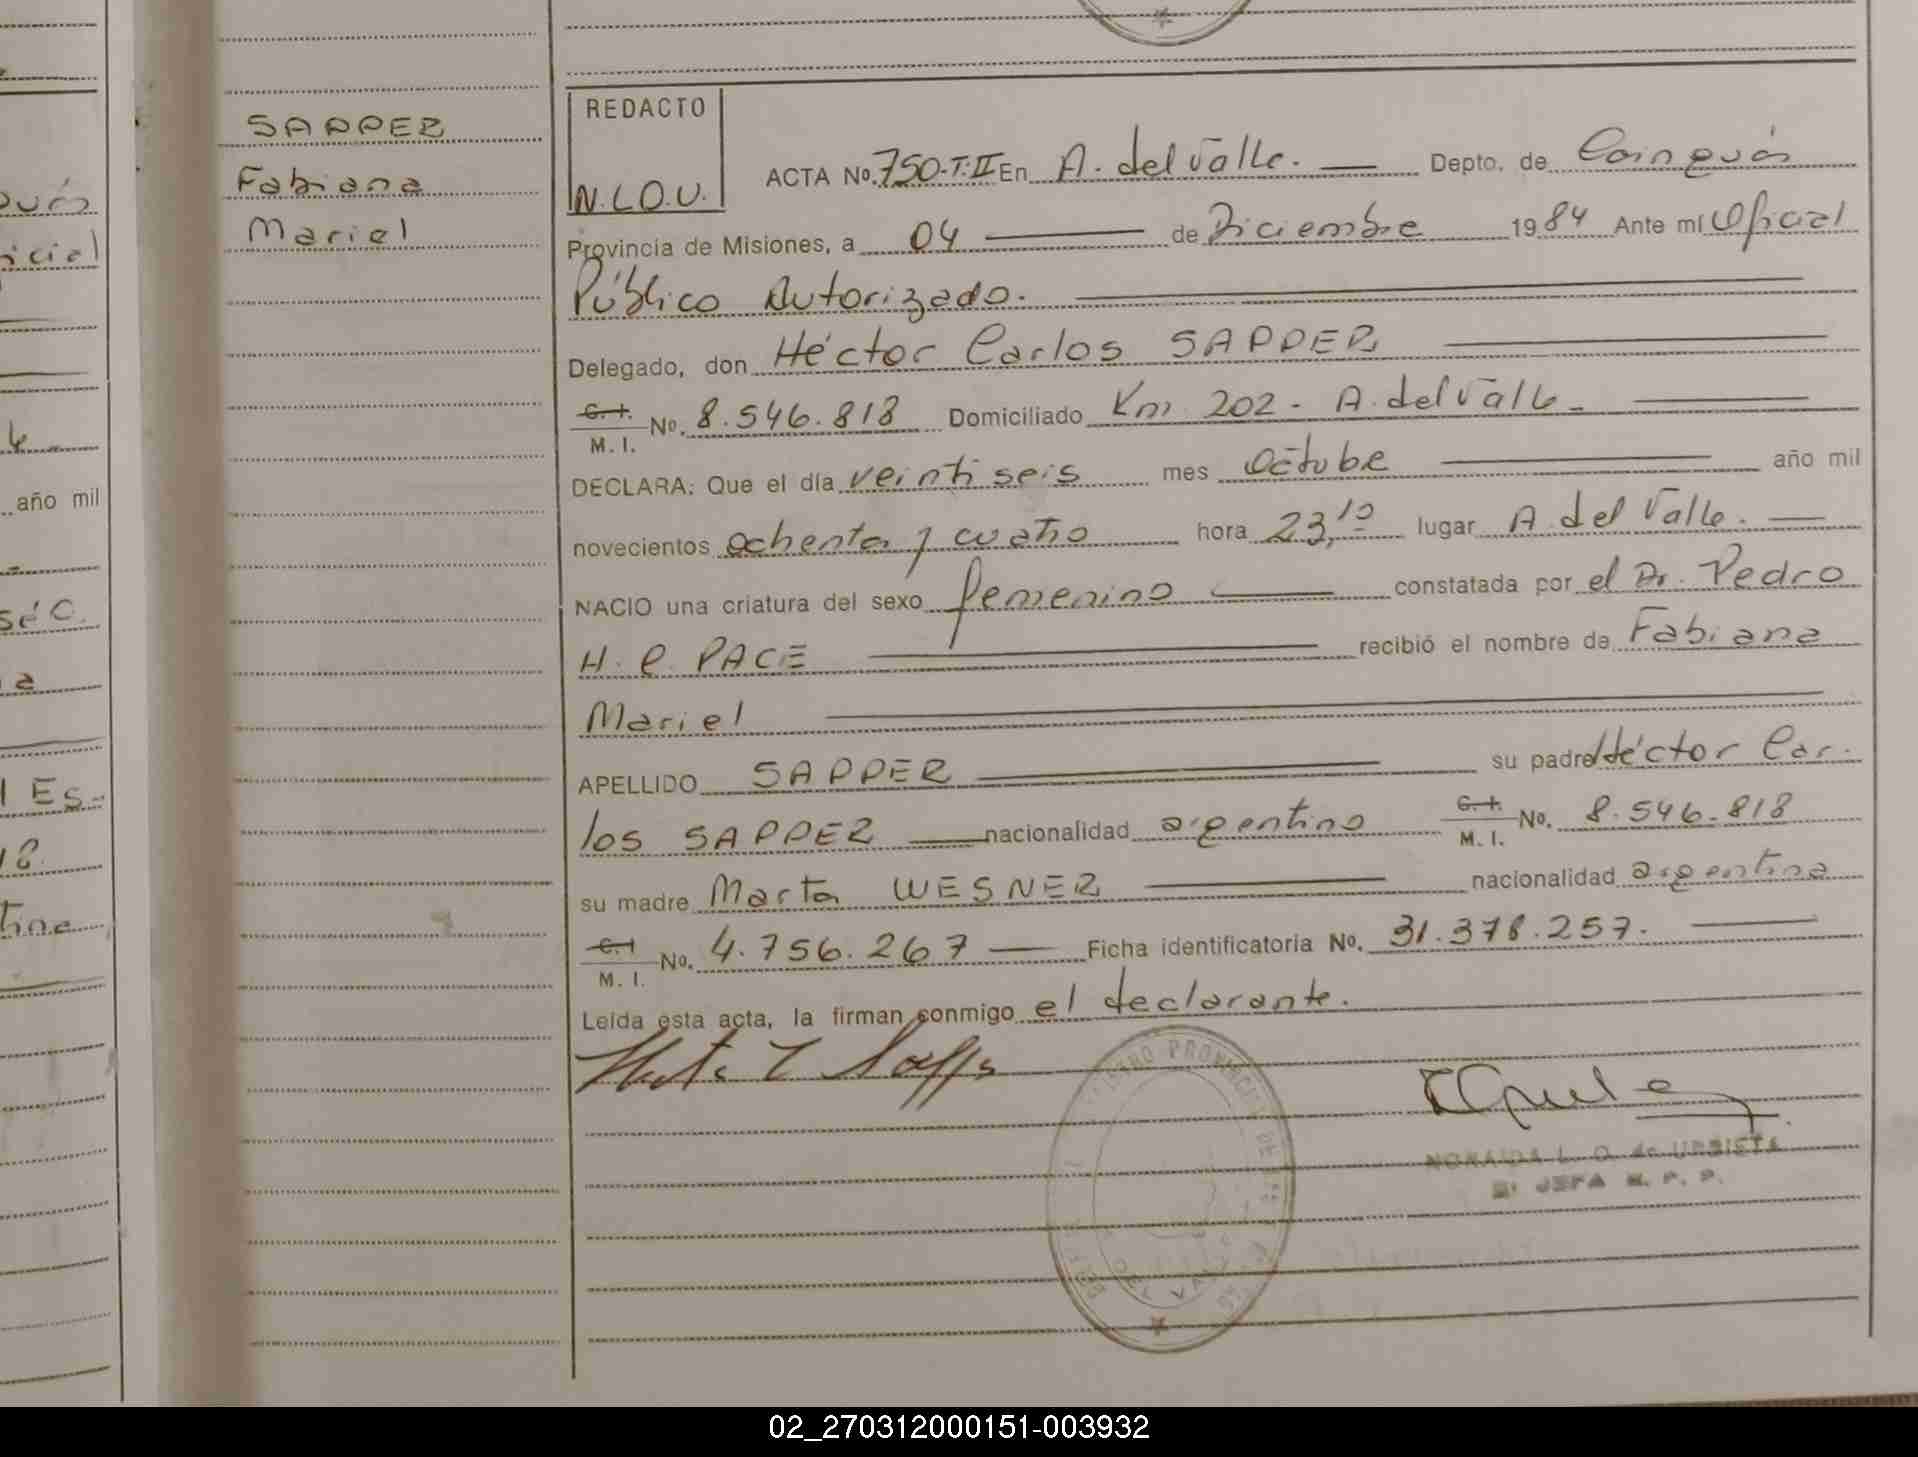 SAPPER
Fabiana
Mariel
REDACTO
N.L.O.U.
ACTA No. 750-T:II En A. del Valle. Depto. de Cainguás
Provincia de Misiones, a 04 de Diciembre 1984 Ante mí Oficial
Público Autorizado.
Delegado, don Héctor Carlos SAPPER
C. I. M. I. No. 8.546.818 Domiciliado Km 202 - A. del Valle
DECLARA: Que el día veintiseis mes Octube año mil
novecientos ochenta y cuatro hora 23,10 lugar A. del Valle.
NACIO una criatura del sexo femenino constatada por el Dr. Pedro
H. C. PACE recibió el nombre de Fabiana
Mariel
APELLIDO SAPPER su padre Héctor Car-
los SAPPER nacionalidad argentino C. I. M. I. No. 8.546.818
su madre Marta WESNER nacionalidad argentina
C. I M. I. No. 4.756.267 Ficha identificatoria No. 31.378.257.
Leída esta acta, la firman conmigo el declarante.
NORAIDA L. O. de URBIETA
JEFA R. P. P.
DEL VALLE
año mil
02_270312000151-003932